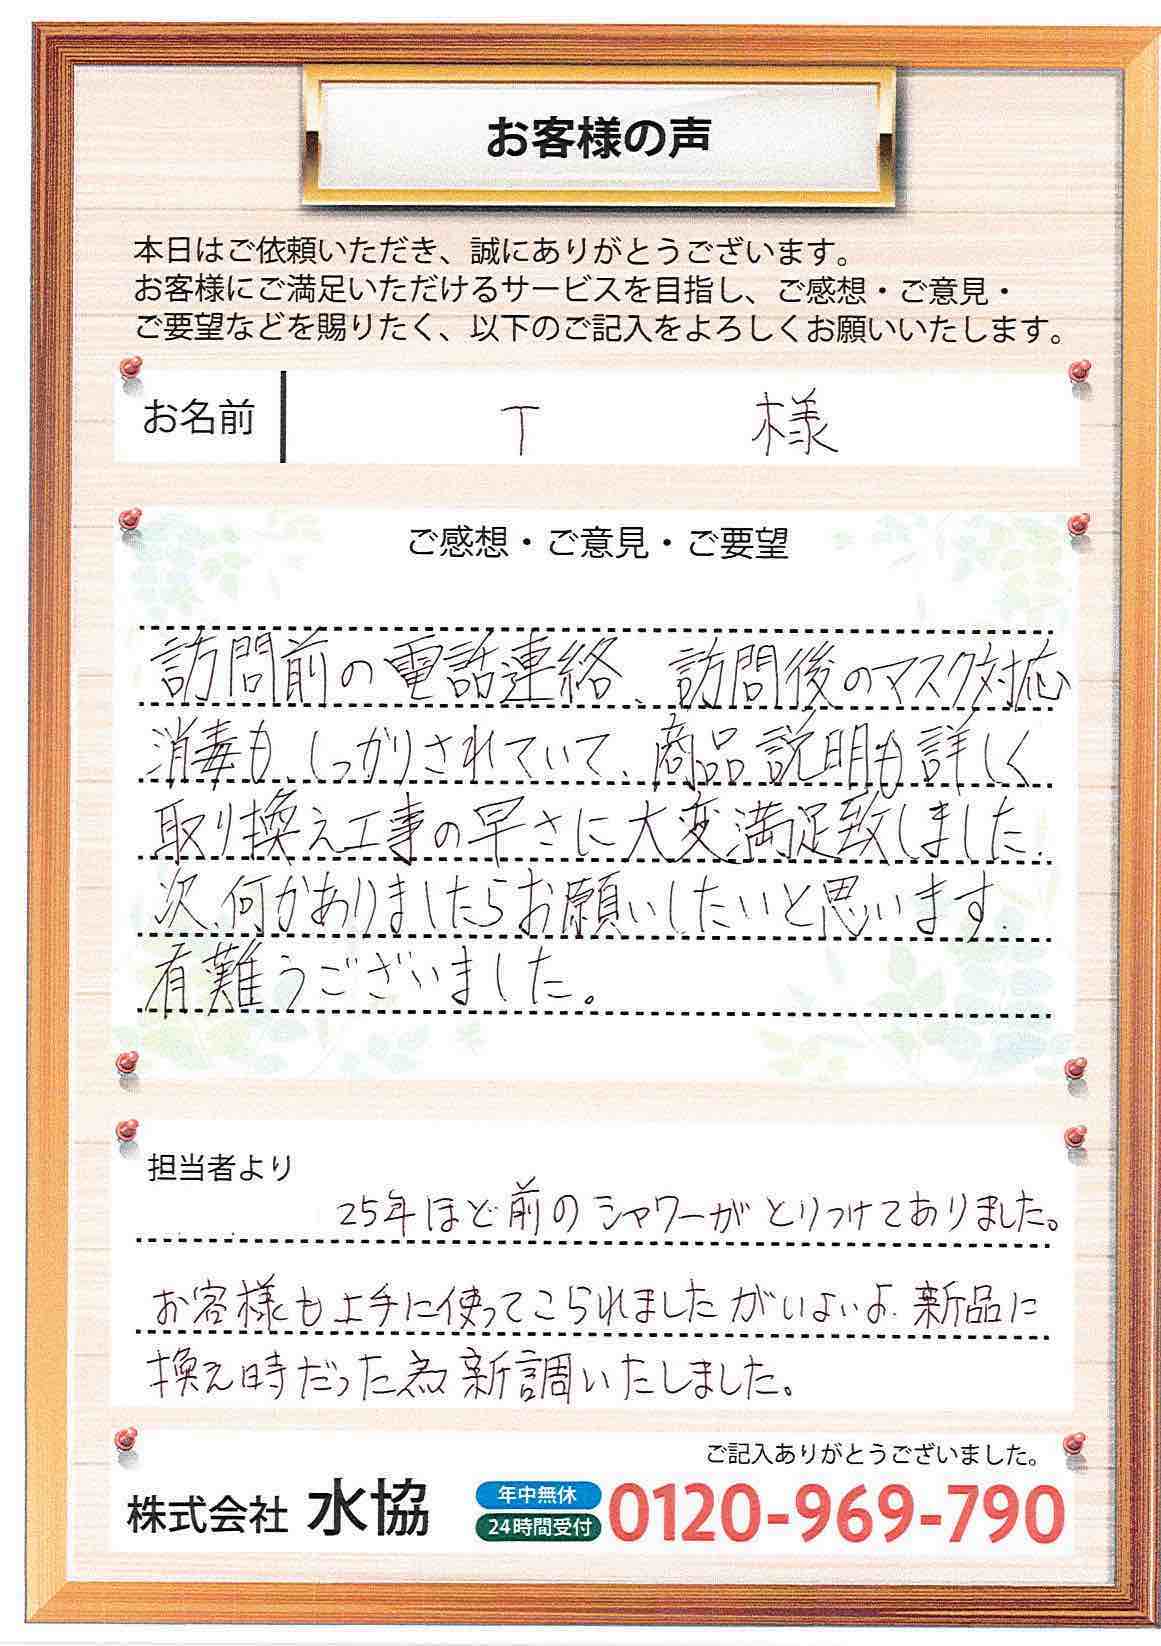 お客様の声
本日はご依頼いただき、誠にありがとうございます。
お客様にご満足いただけるサービスを目指し、ご感想・ご意見・
ご要望などを賜りたく、以下のご記入をよろしくお願いいたします。
お名前 T 様
ご感想・ご意見・ご要望
訪問前の電話連絡、訪問後のマスク対応
消毒も、しっかりされていて、商品説明も詳しく
取り換え工事の早さに大変満足致しました.
次、何かありましたらお願いしたいと思います.
有難うございました。
担当者より
25年ほど前のシャワーがとりつけてありました。
お客様も上手に使ってこられましたがいよいよ、新品に
換え時だった為新調いたしました。
ご記入ありがとうございました。
株式会社 水協 年中無休 24時間受付 0120-969-790